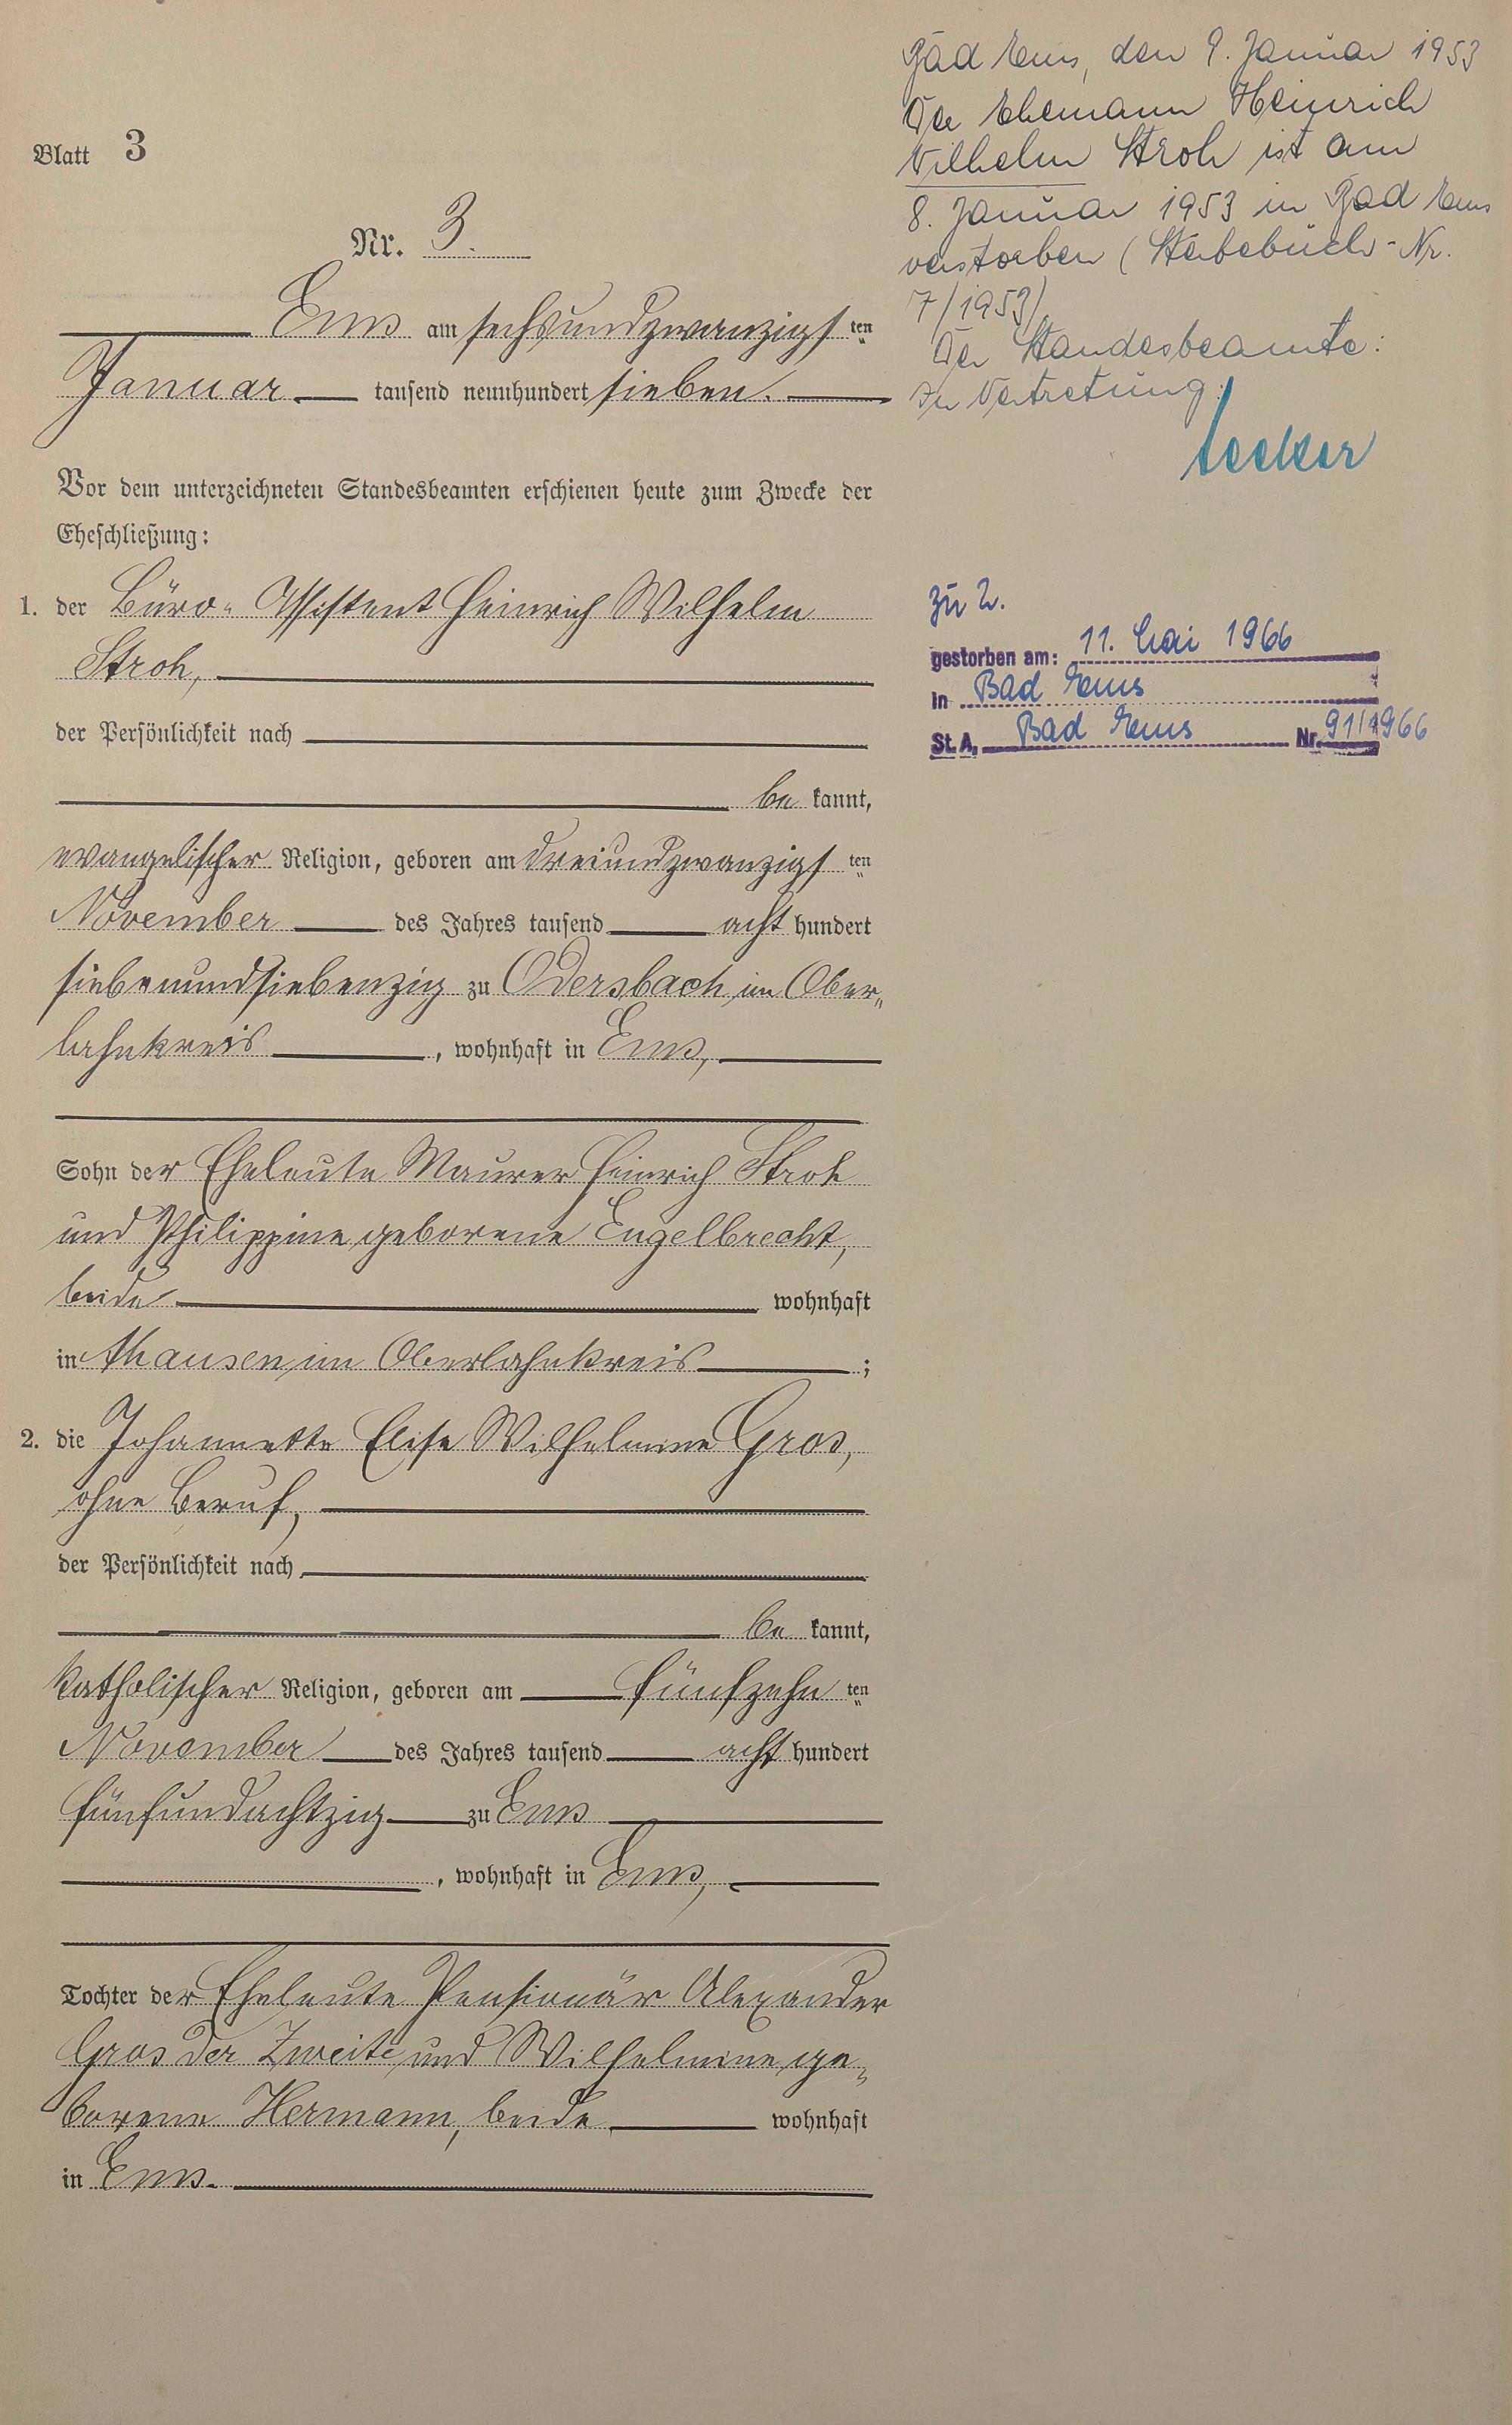 Blatt 3
Nr. 3.
Ems am sechsundzwanzigsten
Januar tausend neunhundert sieben.
Vor dem unterzeichneten Standesbeamten erschienen heute zum Zwecke der
Eheschließung:
1. der Büro-Assistent Heinrich Wilhelm
Stroh,
der Persönlichkeit nach
be kannt,
evangelischer Religion, geboren am dreiundzwanzigsten
November des Jahres tausend acht hundert
siebenundsiebenzig zu Odersbach im Ober-
lahnkreis, wohnhaft in Ems,
Sohn der Eheleute Maurer Heinrich Stroh
und Philippine geborene Engelbrecht,
beide wohnhaft
in Ahausen im Oberlahnkreis;
2. die Johannette Elise Wilhelmine Gros,
ohne Beruf,
der Persönlichkeit nach
be kannt,
katholischer Religion, geboren am fünfzehnten
November des Jahres tausend acht hundert
fünfundachtzig zu Ems
, wohnhaft in Ems,
Tochter der Eheleute Pensionär Alexander
Gros der Zweite und Wilhelmine ge-
borene Hermann, beide wohnhaft
in Ems.
Bad Ems, den 9. Januar 1953
Der Ehemann Heinrich
Wilhelm Stroh ist am
8. Januar 1953 in Bad Ems
verstorben (Sterbebuch-Nr.
7/1953)
Der Standesbeamte:
In Vertretung:
zu 2.
gestorben am: 11. Mai 1966
in Bad Ems
St. A. Bad Ems Nr. 91/1966